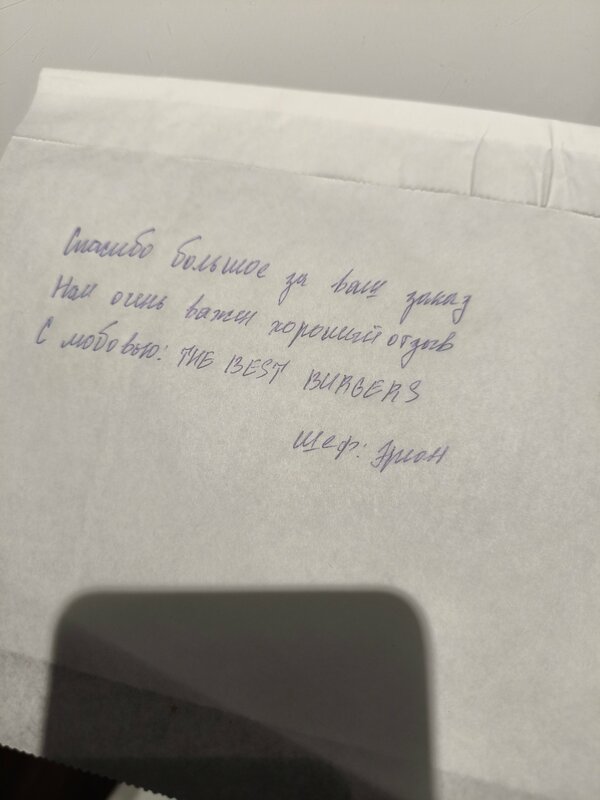 Спасибо большое за ваш заказ
Нам очень важен хороший отзыв
С любовью: THE BEST BURGERS
Шеф: